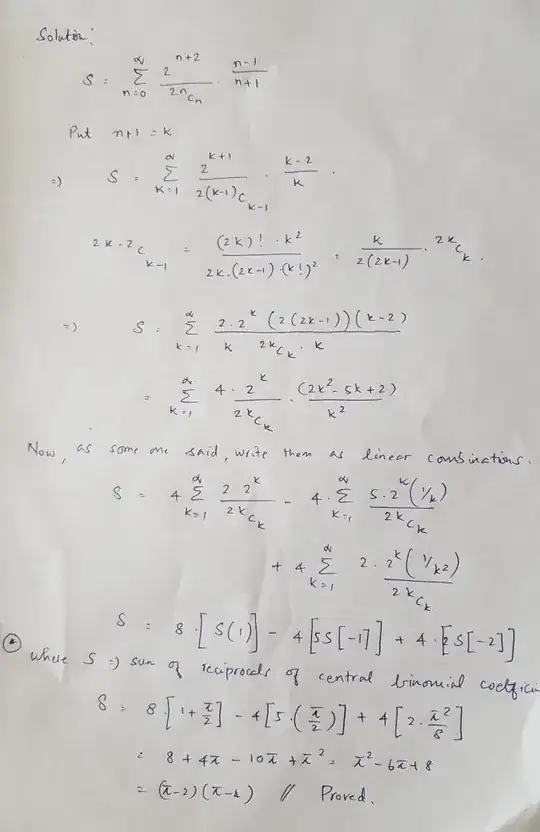 Solution:
S = ∞ Σ n=0 2^(n+2) / 2n C n · (n-1)/(n+1)
Put n+1 = k
=) S = ∞ Σ k=1 2^(k+1) / 2(k-1) C k-1 · (k-2)/k .
2k-2 C k-1 = (2k)! · k² / 2k·(2k-1)·(k!)² = k / 2(2k-1) · 2k C k .
=) S = ∞ Σ k=1 2·2^k (2(2k-1))(k-2) / k 2k C k · k
= ∞ Σ k=1 4·2^k / 2k C k · (2k²-5k+2) / k²
Now, as some one said, write them as linear combinations.
S = 4 ∞ Σ k=1 2 2^k / 2k C k - 4· ∞ Σ k=1 5·2^k (1/k) / 2k C k
+ 4 ∞ Σ k=1 2·2^k (1/k²) / 2k C k
S = 8·[S(1)] - 4[5S[-1]] + 4·[2S[-2]]
* where S =) sum of reciprocals of central binomial coefficie
S = 8·[1+π/2] - 4[5·(π/2)] + 4[2·π²/8]
= 8 + 4π - 10π + π² = π²-6π+8
= (π-2)(π-4) // Proved.